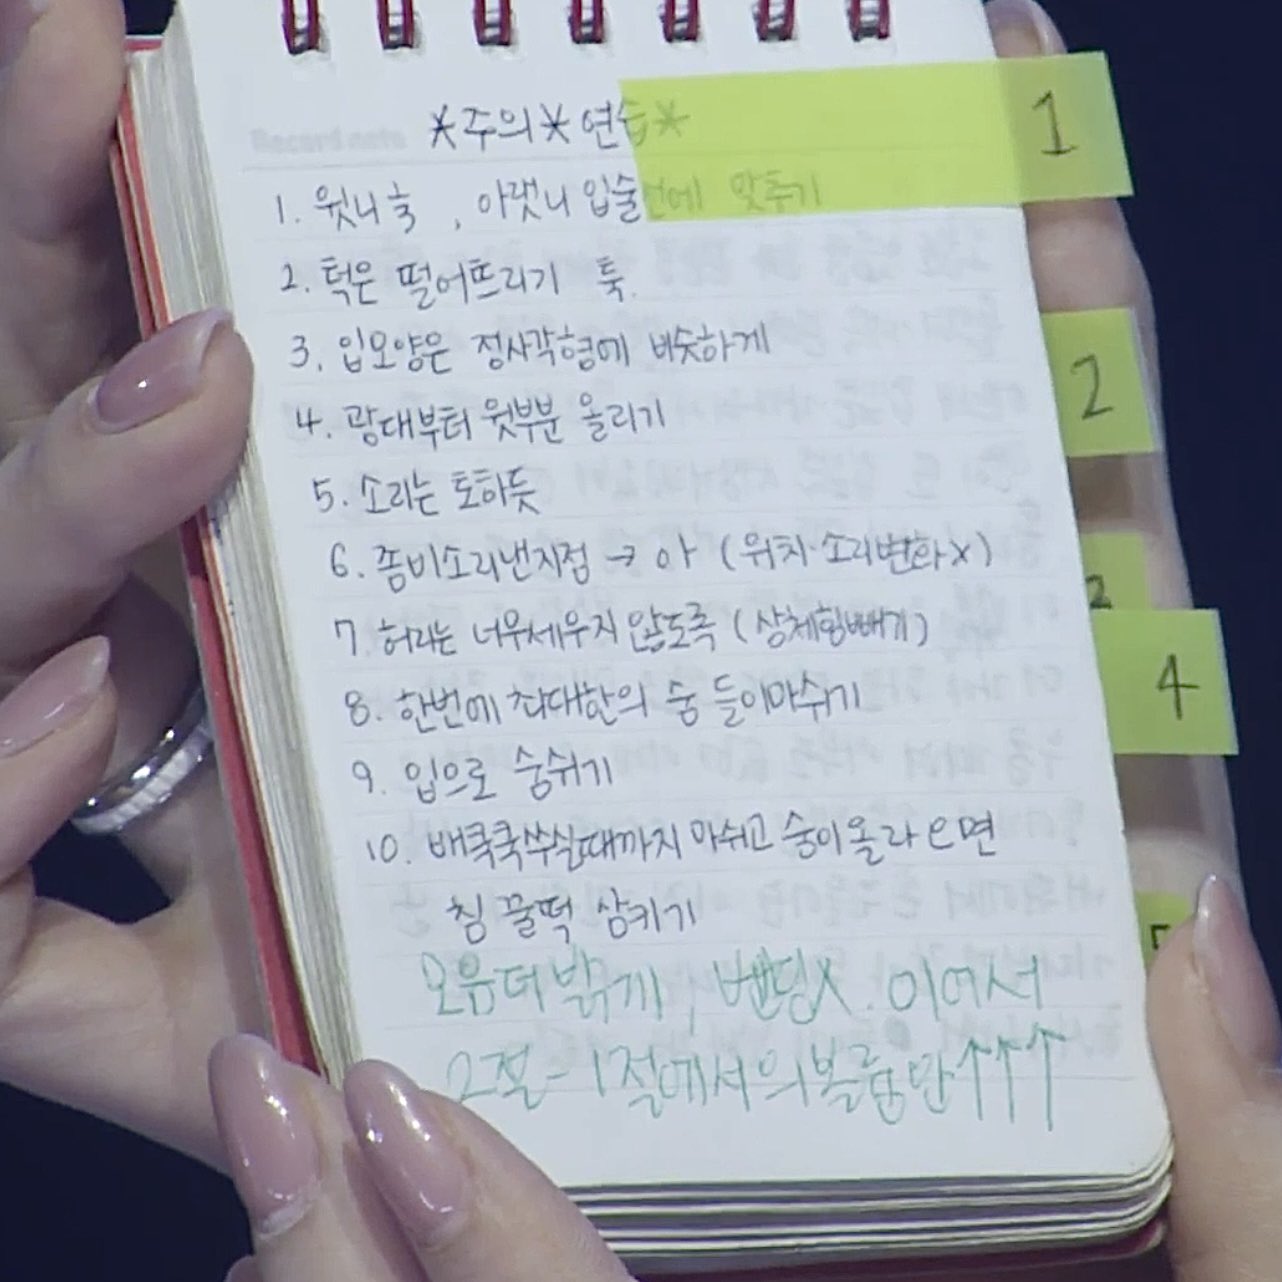 Record note
*주의* 연습*
1. 윗니 훅 , 아랫니 입술선에 맞추기
2. 턱은 떨어뜨리기 툭.
3. 입모양은 정사각형에 비슷하게
4. 광대부터 윗부분 올리기
5. 소리는 토하듯
6. 좀비소리낸지점 → 아 (위치·소리변화x)
7. 허리는 너무세우지 않도록 (상체힘빼기)
8. 한번에 최대한의 숨 들이마쉬기
9. 입으로 숨쉬기
10. 배쿡쿡쑤실때까지 마쉬고 숨이올라오면
침 꿀떡 삼키기
모음더밝게, 벤딩X. 이어서
2절-1절에서의볼륨만↑↑↑
1
2
3
4
5